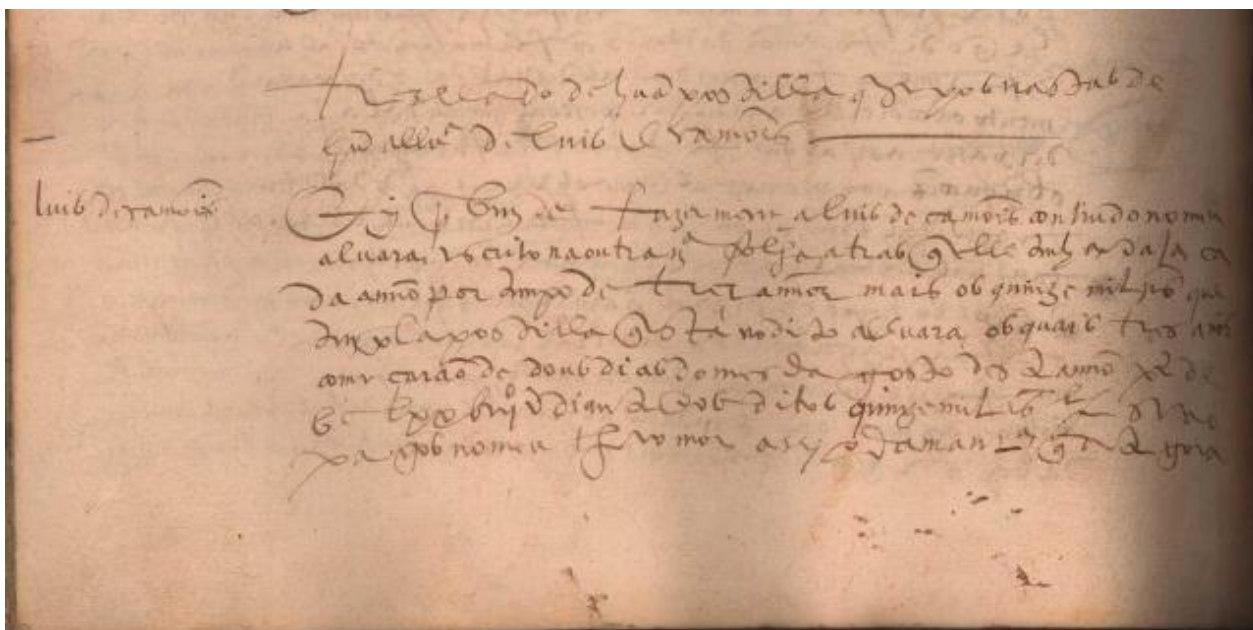 Trellado de hũa postilla q se pos nas costas de
de luis de camões
luis de camois
Ey por bem de fazer merce a luis de camois contiudo no meu
aluara escrito na outra folha atras q elle tenha e aja ca
da anno por tempo de tres annos mais os quinze mil rs que
tinha pla postilla q está no dito aluara os quais tres anos
começarão de dous dias do mes dagosto deste anno de
bc lxxbiij ẽ diante e os ditos quinze mil rs lhe serão
pagos no meu tisouro mor asy e da maneira q ate gora